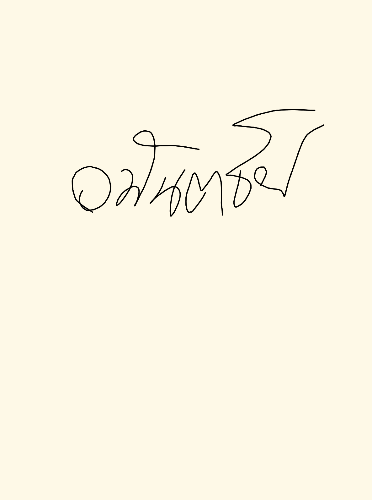 อนันตชัย